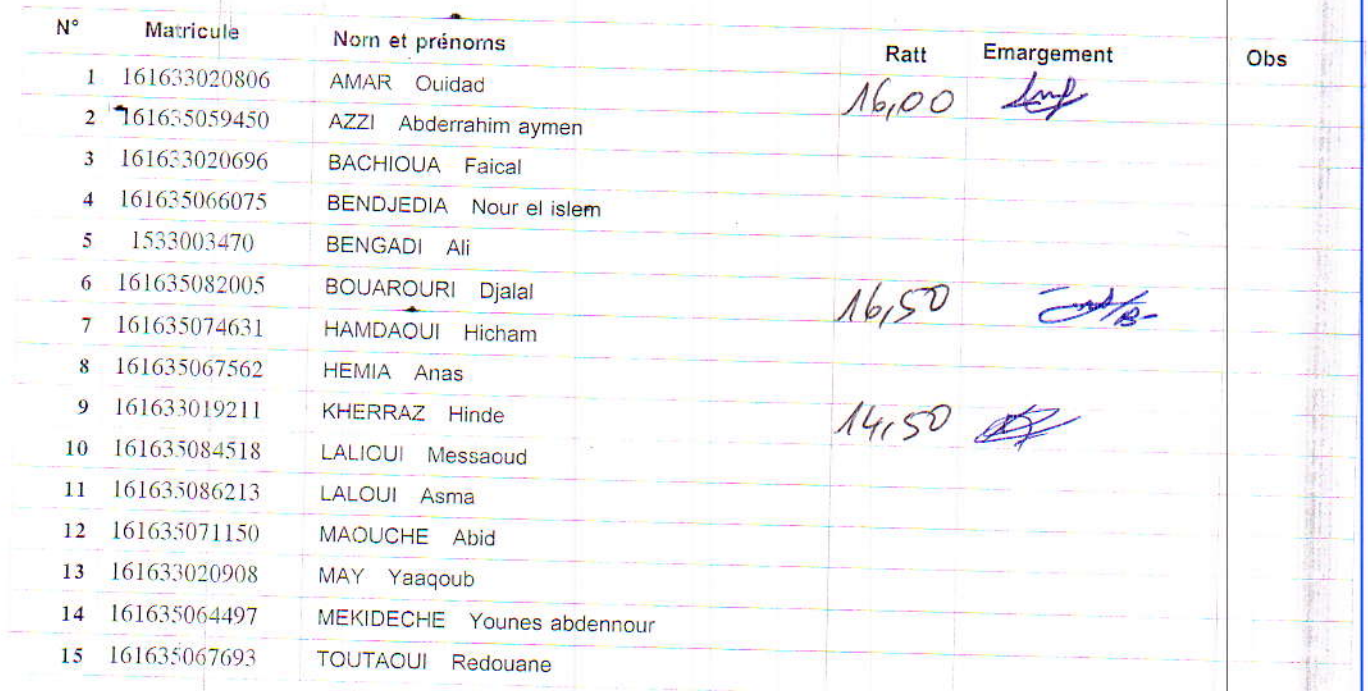 N° Matricule Nom et prénoms Ratt Emargement Obs
1 161633020806 AMAR Ouidad 16,00
2 161635059450 AZZI Abderrahim aymen
3 161633020696 BACHIOUA Faical
4 161635066075 BENDJEDIA Nour el islem
5 1533003470 BENGADI Ali
6 161635082005 BOUAROURI Djalal 16,50
7 161635074631 HAMDAOUI Hicham
8 161635067562 HEMIA Anas
9 161633019211 KHERRAZ Hinde 14,50
10 161635084518 LALIOUI Messaoud
11 161635086213 LALOUI Asma
12 161635071150 MAOUCHE Abid
13 161633020908 MAY Yaaqoub
14 161635064497 MEKIDECHE Younes abdennour
15 161635067693 TOUTAOUI Redouane